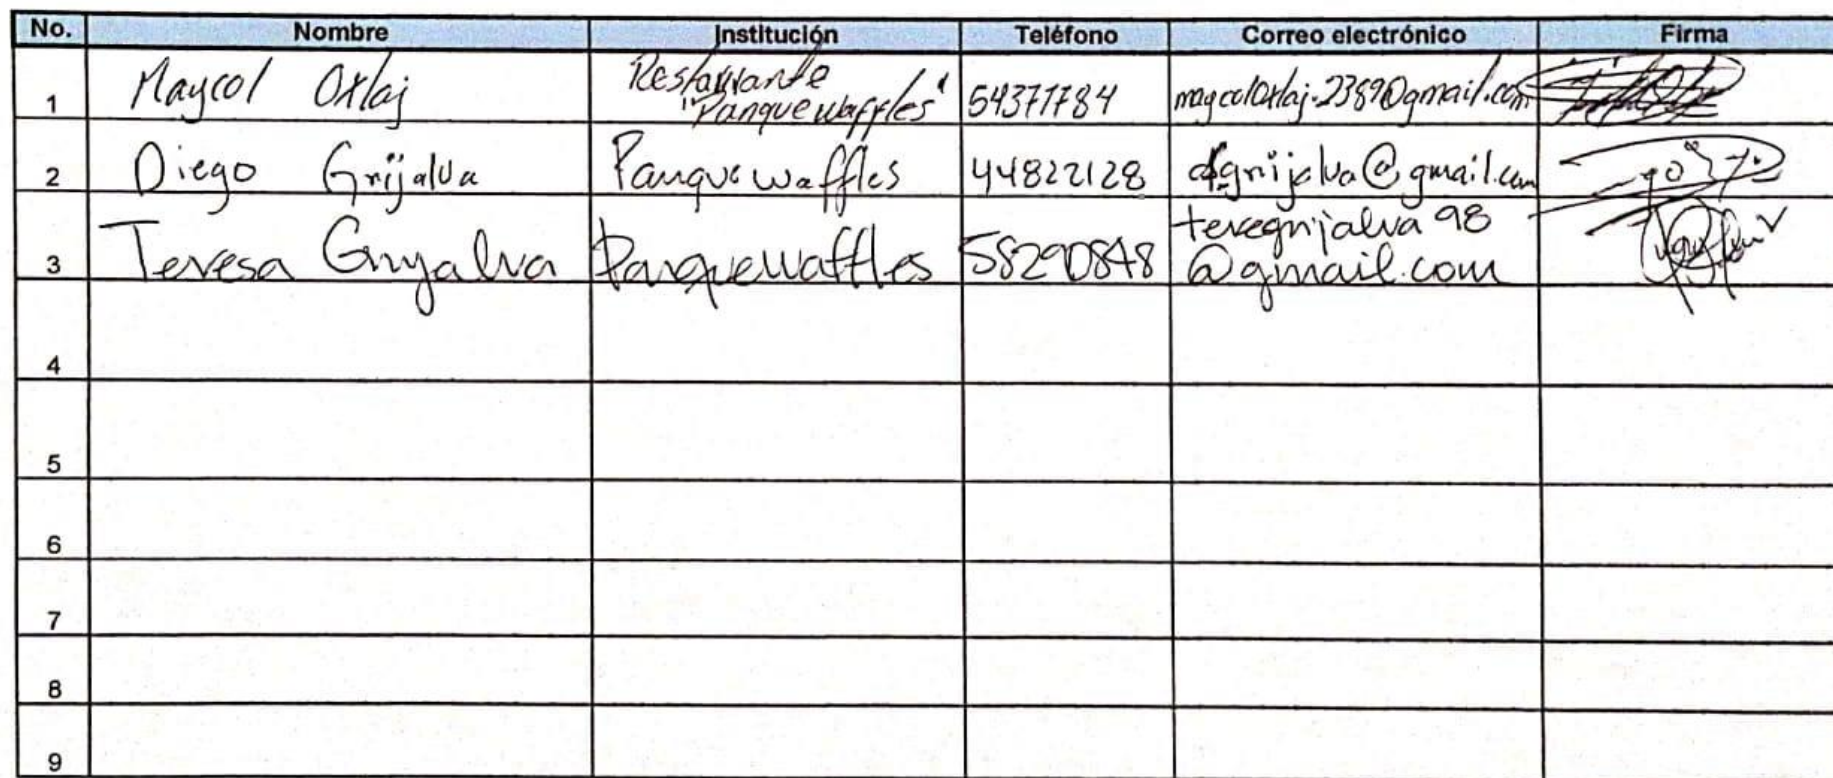 No. Nombre Institución Teléfono Correo electrónico Firma
1 Maycol Oxlaj Restaurante "Panquewaffles" 54377784 maycolOxlaj.2389@gmail.com
2 Diego Grijalva Panquewaffles 44822128 dgrijalva@gmail.com
3 Teresa Grijalva Panquewaffles 58290848 teregrijalva98
@gmail.com
4
5
6
7
8
9